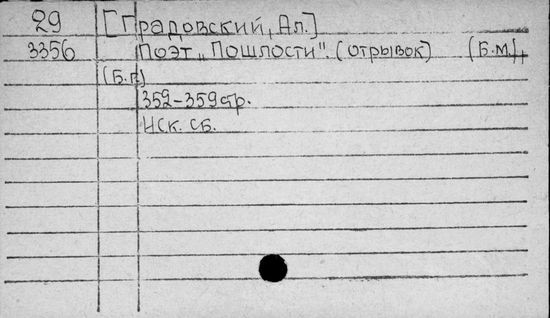 29 [Градовский, Ал.]
3356 Поэт „Пошлости". (отрывок) (Б.м.),
(Б.г.)
352-359 стр.
Иск. сб.